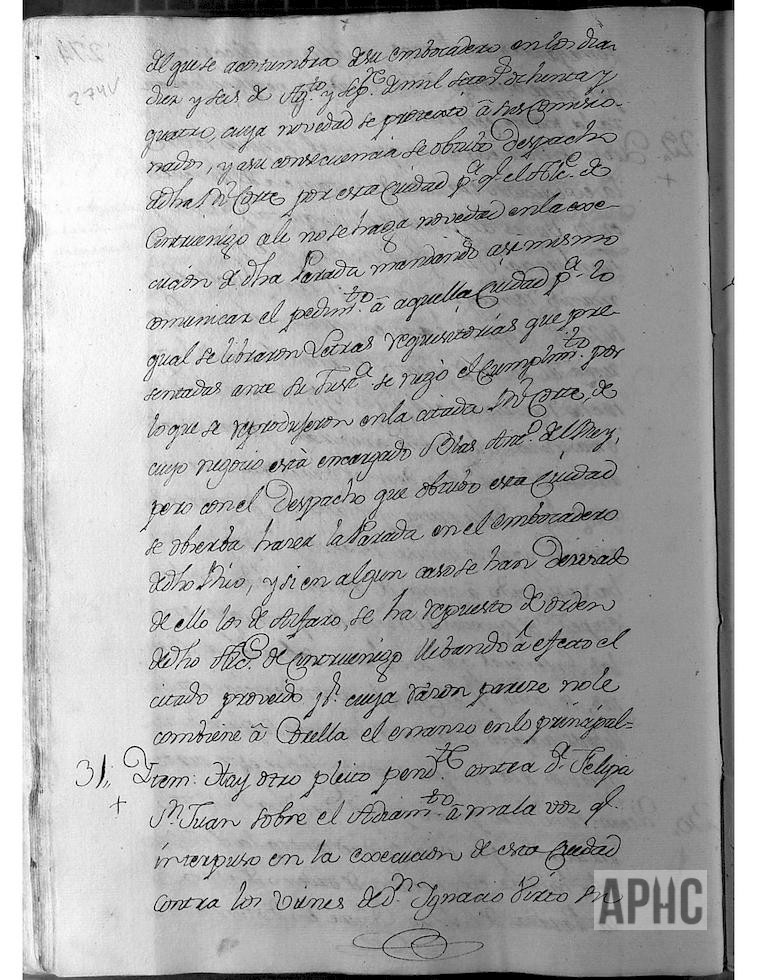 274V
del que se acostumbra a su embocadero en los dias
diez y seis de Agto y Sepe de mil setecs ochenta y
quatro, cuya novedad se precató â sus Comisio-
nados, y a su consecuencia se obtubo Despacho
de dha Rl Corte por esta Ciudad pa ql el Alce de
Cintruenigo ali no se haga novedad en la exe-
cucion de dha Parada mandando asi mismo
comunicar el pedimto â aquella Ciudad pa lo
qual se libraron Letras requisitorias que pre-
sentadas ante su Justa se negó el Cumplimto por
lo que se reprodujeron en la citada Rl Corte, de
cuyo negocio està encargado Blas Anto del Rey,
pero con el Despacho que obtubo esta Ciudad
se obserba hazer la Parada en el embocadero
de dho Rio, y si en algun caso se han desviado
de ello los de Alfaro, se ha repuesto de orden
de dho Alce de Cintruenigo llebando â efecto el
citado proveido pr cuya razon pareze no le
combiene â Corella el enanzo en lo principal=
31,, Ytem: Hay otro pleito pende contra Da Felipa
+ Sn Juan sobre el Adiamto â mala voz ql
interpuso en la execucion de esta Ciudad
contra los vienes de Dn Ignacio Virto su
APHC